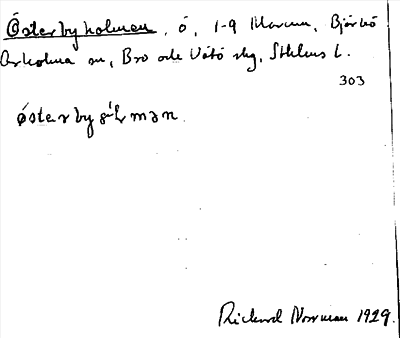 Österbyholmen, ö, 1-9 Marum, Björkö
Arholma sn, Bro och Vätö skg, Sthlms l.
303
østerby
Rickard Norrman 1929.